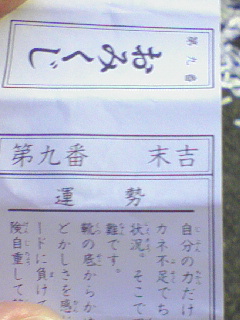 第九番
おみくじ
第九番 末吉
運勢
自分の力だけ
カネ不足でち
状況。そこで
難です。
靴の底からか
どかしさを感
ードに負けて
険自重して